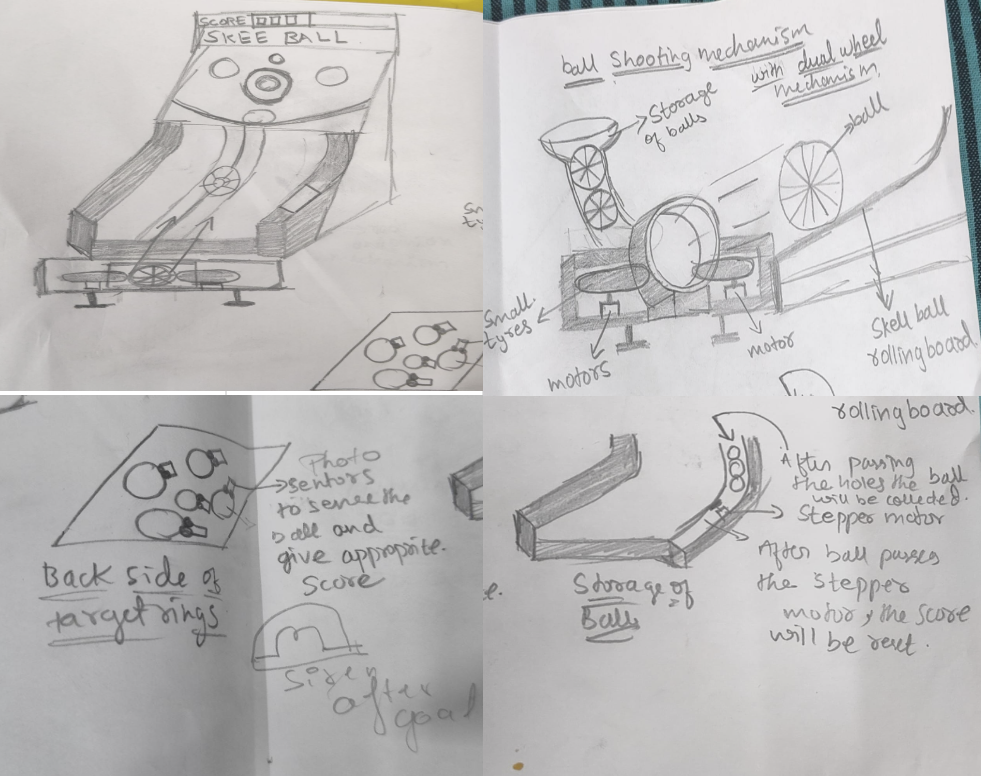 SCORE
SKEE BALL
ball Shooting mechanism
with dual wheel
Mechanism.
Storage
of balls
ball
Small
tyres
motors
motor
Skell ball
rollingboard.
Photo
sentors
to sence the
ball and
give approprite.
Score
Back side of
target rings
Siren
after
goal
rollingboard.
After passing
the holes the ball
will be colleted.
Stepper motor
After ball passes
the stepper
motor, the score
will be reset.
Storage of
Balls